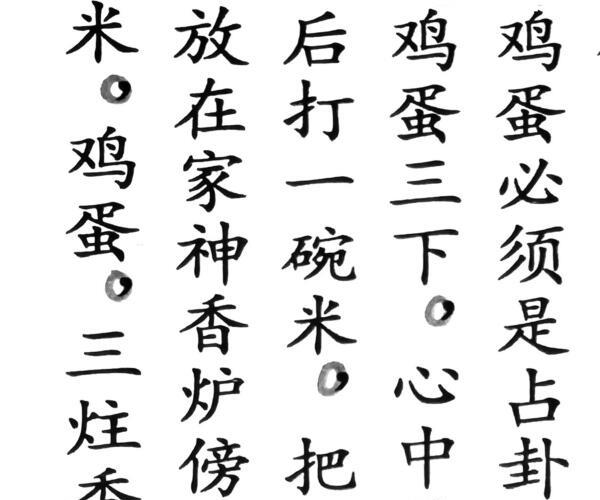 鸡蛋必须是占卦
鸡蛋三下。心中
后打一碗米。把
放在家神香炉傍
米。鸡蛋。三炷香